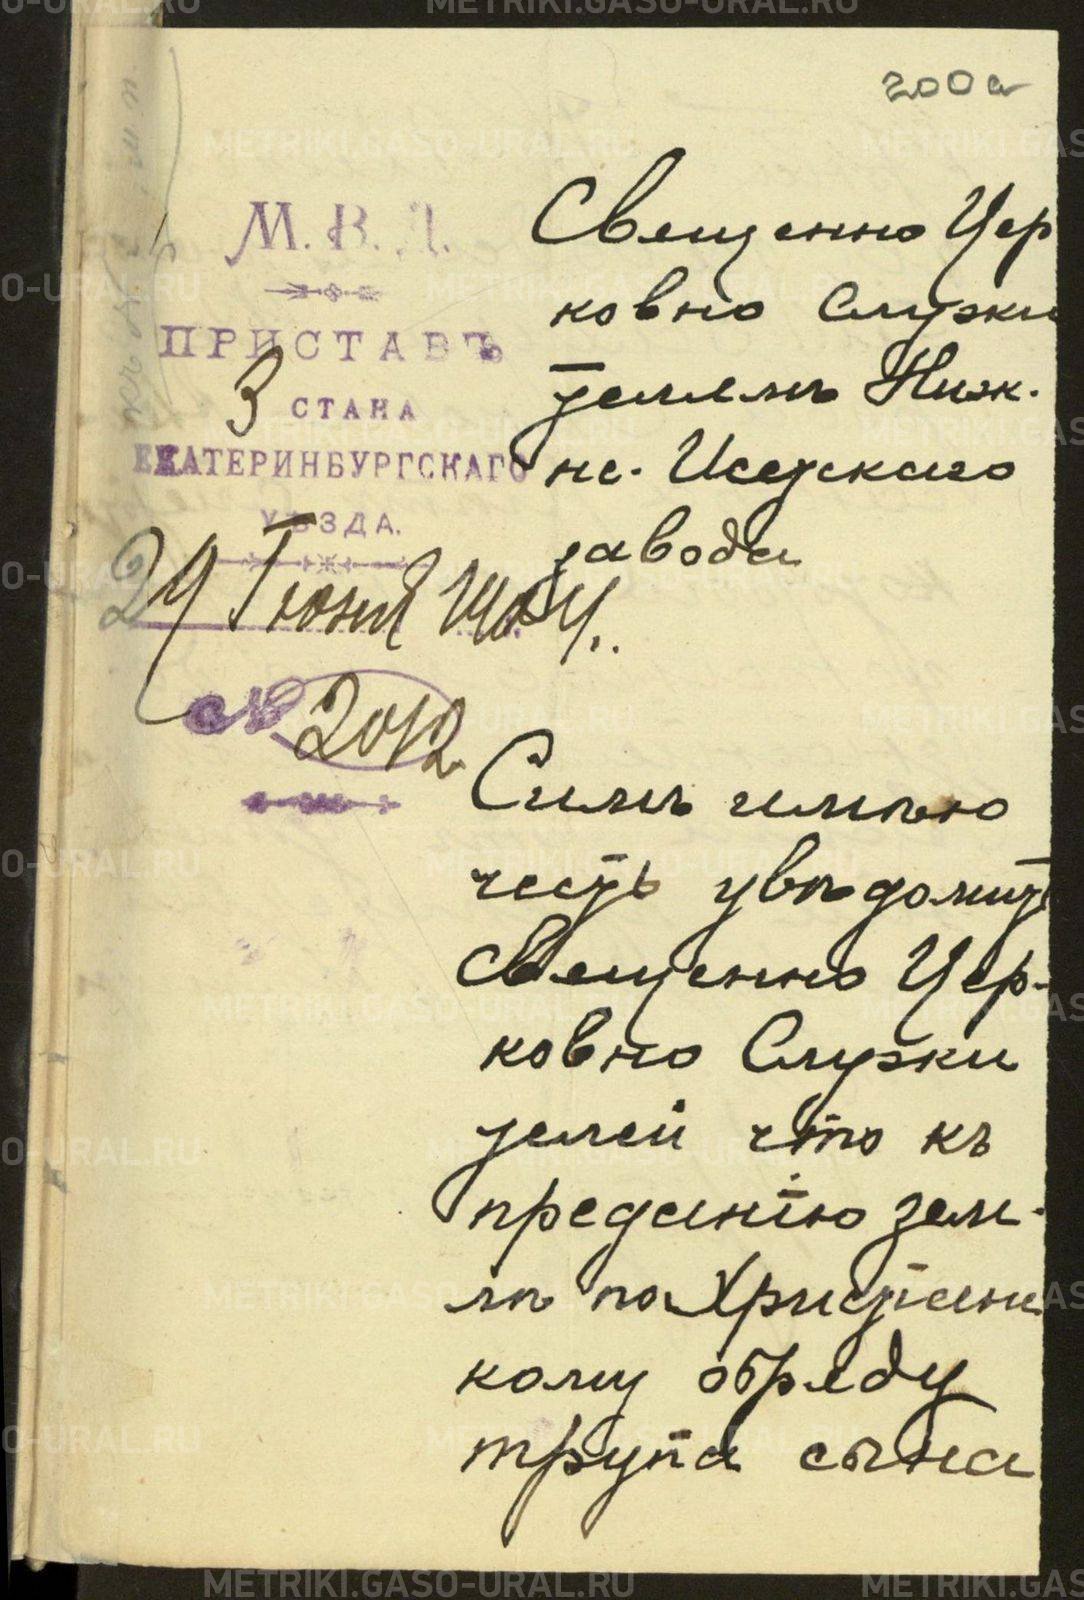 200а
М. В. Д.
ПРИСТАВЪ
3 СТАНА
ЕКАТЕРИНБУРГСКАГО
УѢЗДА.
24 Іюня 1904 г.
№ 2012
Священно Цер
ковно Служи
телямъ Ниж.
не. Исетскаго
завода
Симъ имѣю
честь увѣдомить
Священно Цер-
ковно Служи
телей что къ
преданію зем-
лѣ по Христіан
кому обряду
трупа сына
METRIKI.GASO-URAL.RU